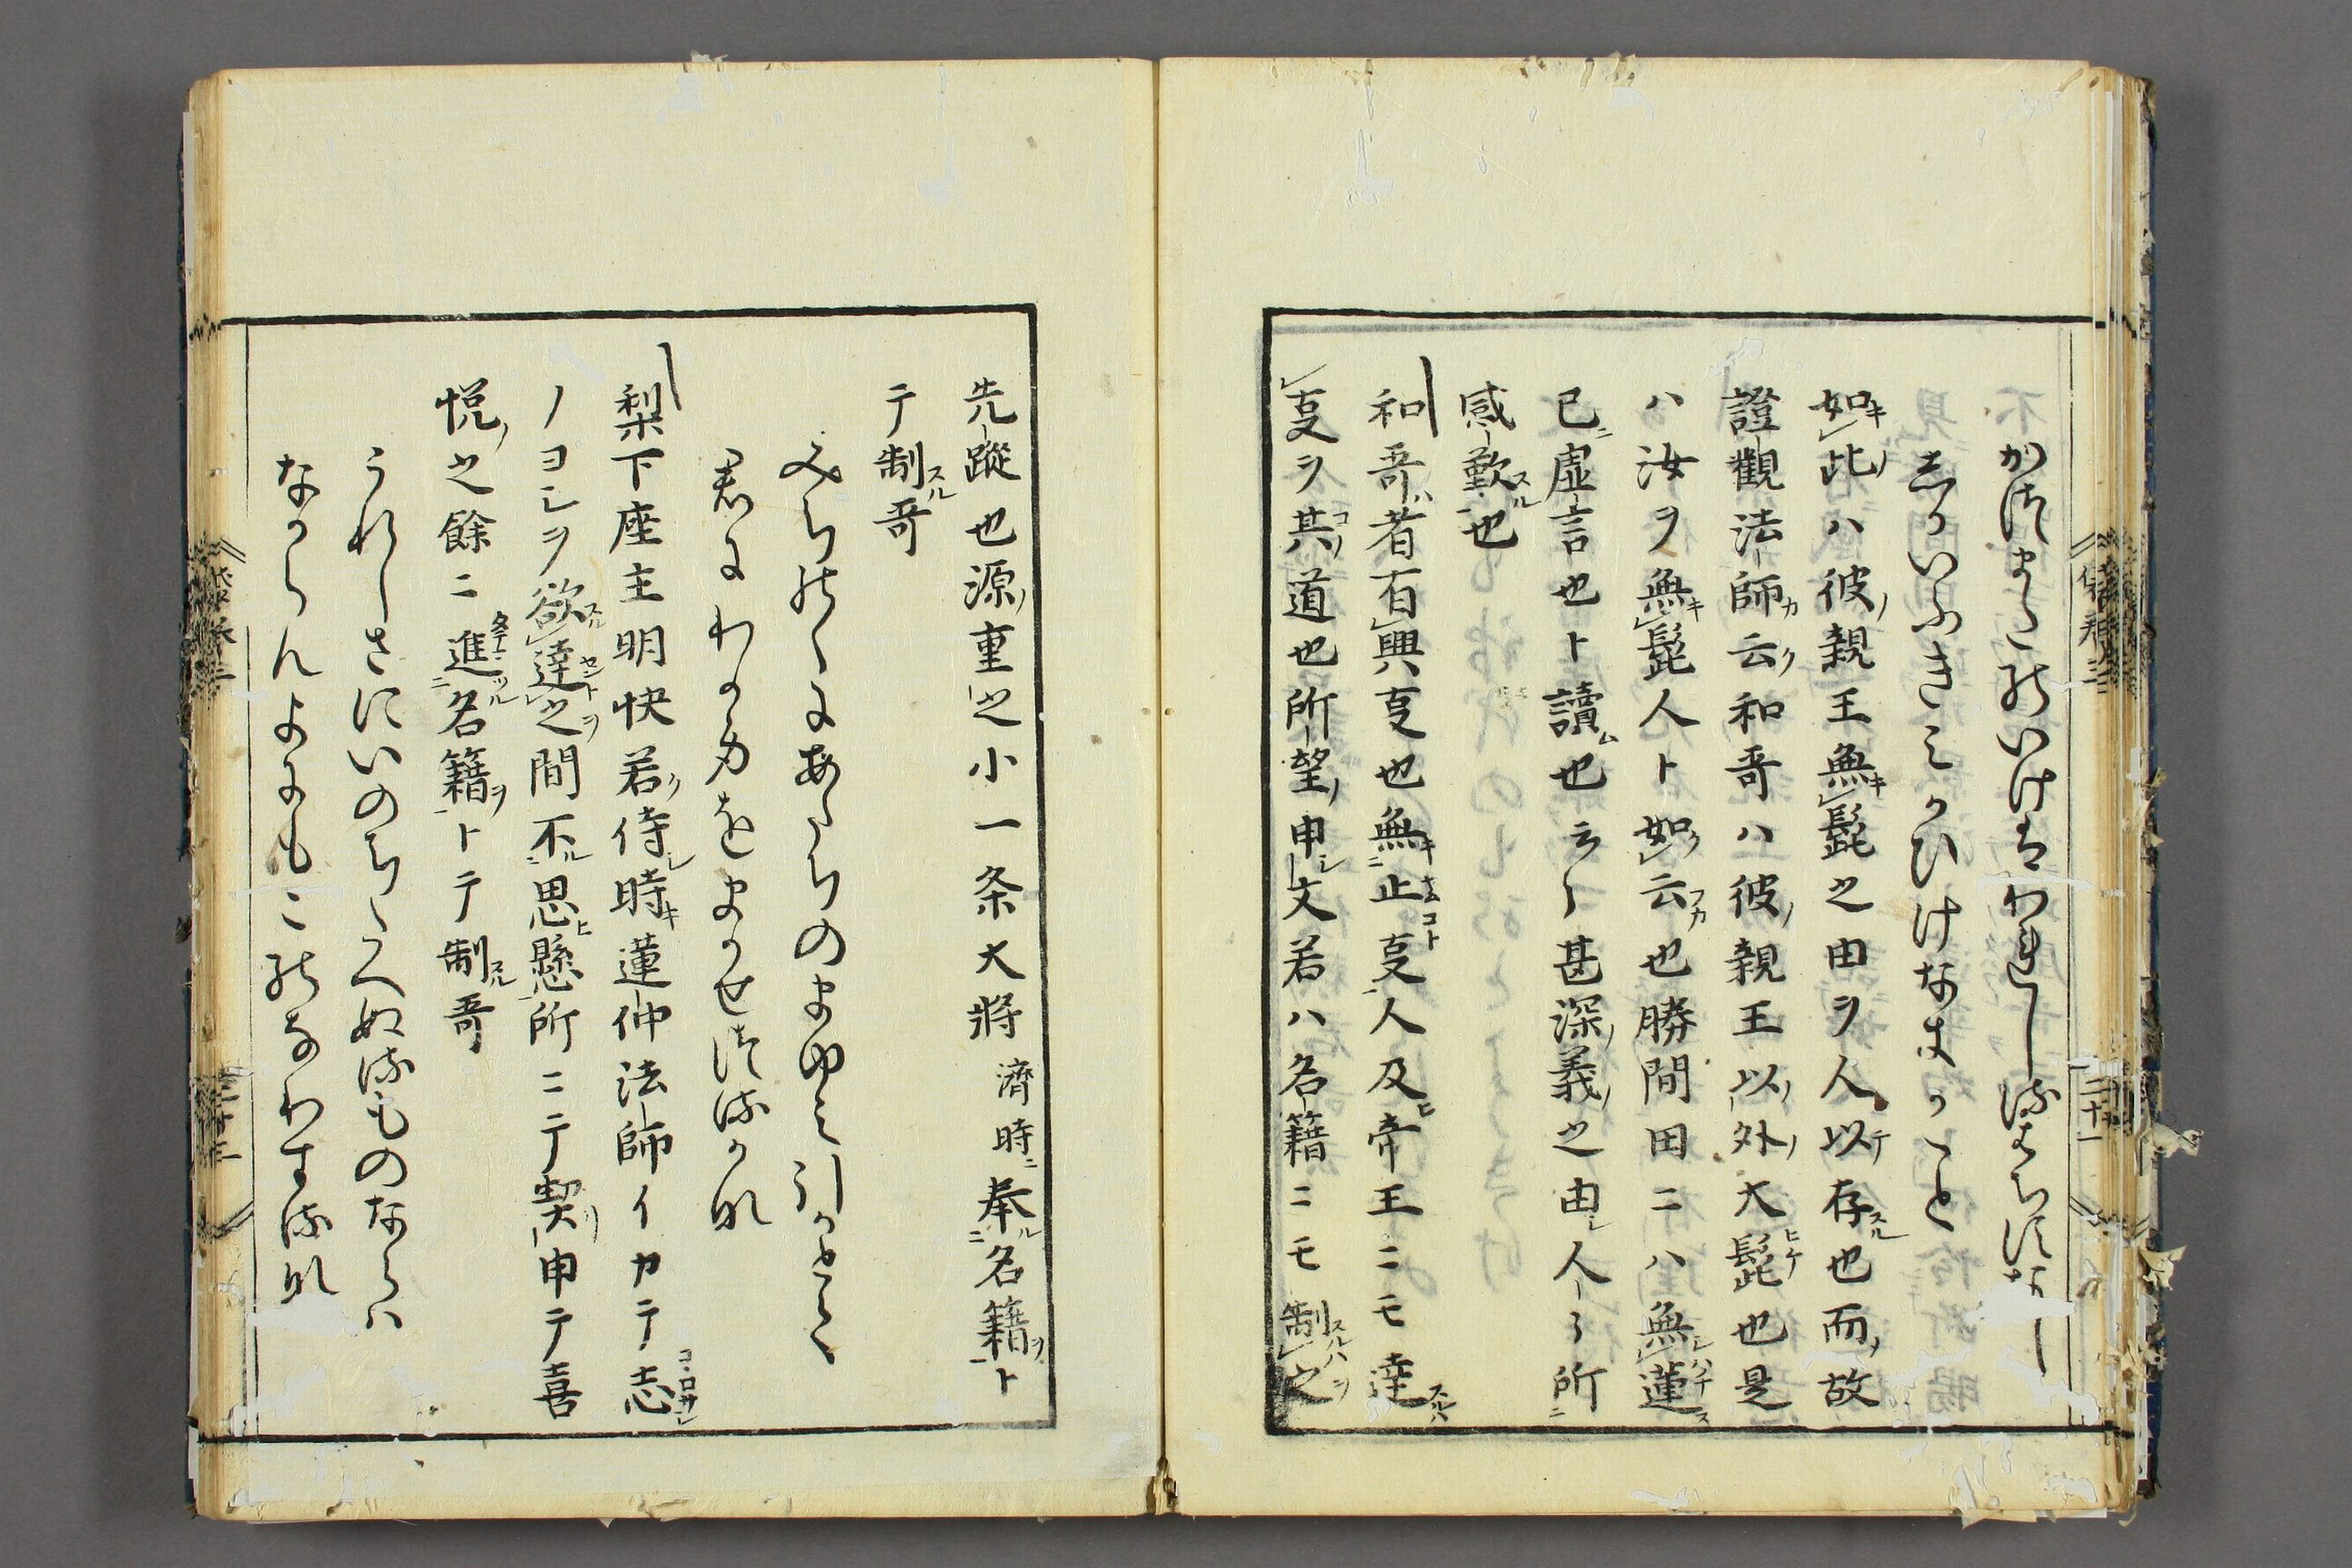 かつまたのいけはわれしるはちすなし
しかいふきみかひけなきかこと
如此ハ彼親王無髭之由ヲ人以存也而故
證觀法師云和哥ハ彼親王以外大髭也是
ハ汝ヲ無髭人ト如云也勝間田ニハ無蓮
已虚言也ト讀也云〻甚深義之由人〻所
感歎也
和哥者有興叓也無止叓人及帝王ニモ達
叓ヲ其道也所望申文若ハ名籍ニモ制之
二十一
先蹤也源重之小一条大将濟時ニ奉名籍ト
テ制哥
みちのくにあたちのまゆみ引かとて
君にわか身をまかせつるかな
梨下座主明快若侍時蓮仲法師イカテ志
ノヨシヲ欲達之間不思懸所ニテ契申テ喜
悦之餘ニ進名籍トテ制哥
うれしさにいのちたへぬるものならハ
なからんよにもこれなわするな